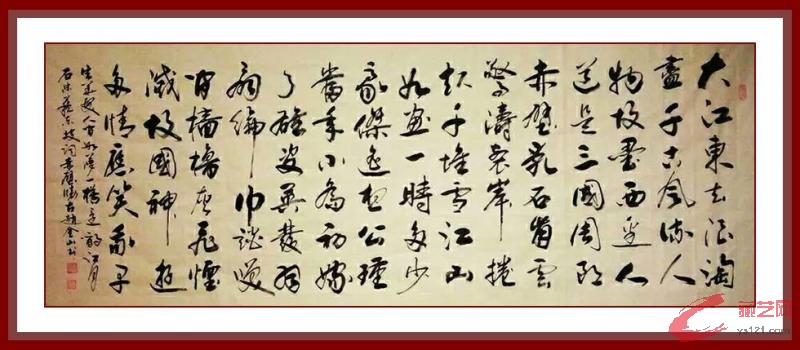 大江東去浪淘
盡千古風流人
物故壘西邊人
道是三國周郎
赤壁亂石崩雲
驚濤裂岸捲
起千堆雪江山
如畫一時多少
豪傑遙想公瑾
當年小喬初嫁
了雄姿英發羽
扇綸巾談笑
間檣櫓灰飛煙
滅故國神遊
多情應笑我早
生華髮人間如夢一樽還酹江月
蘇東坡詞 金山書
藏艺网
ys121.com